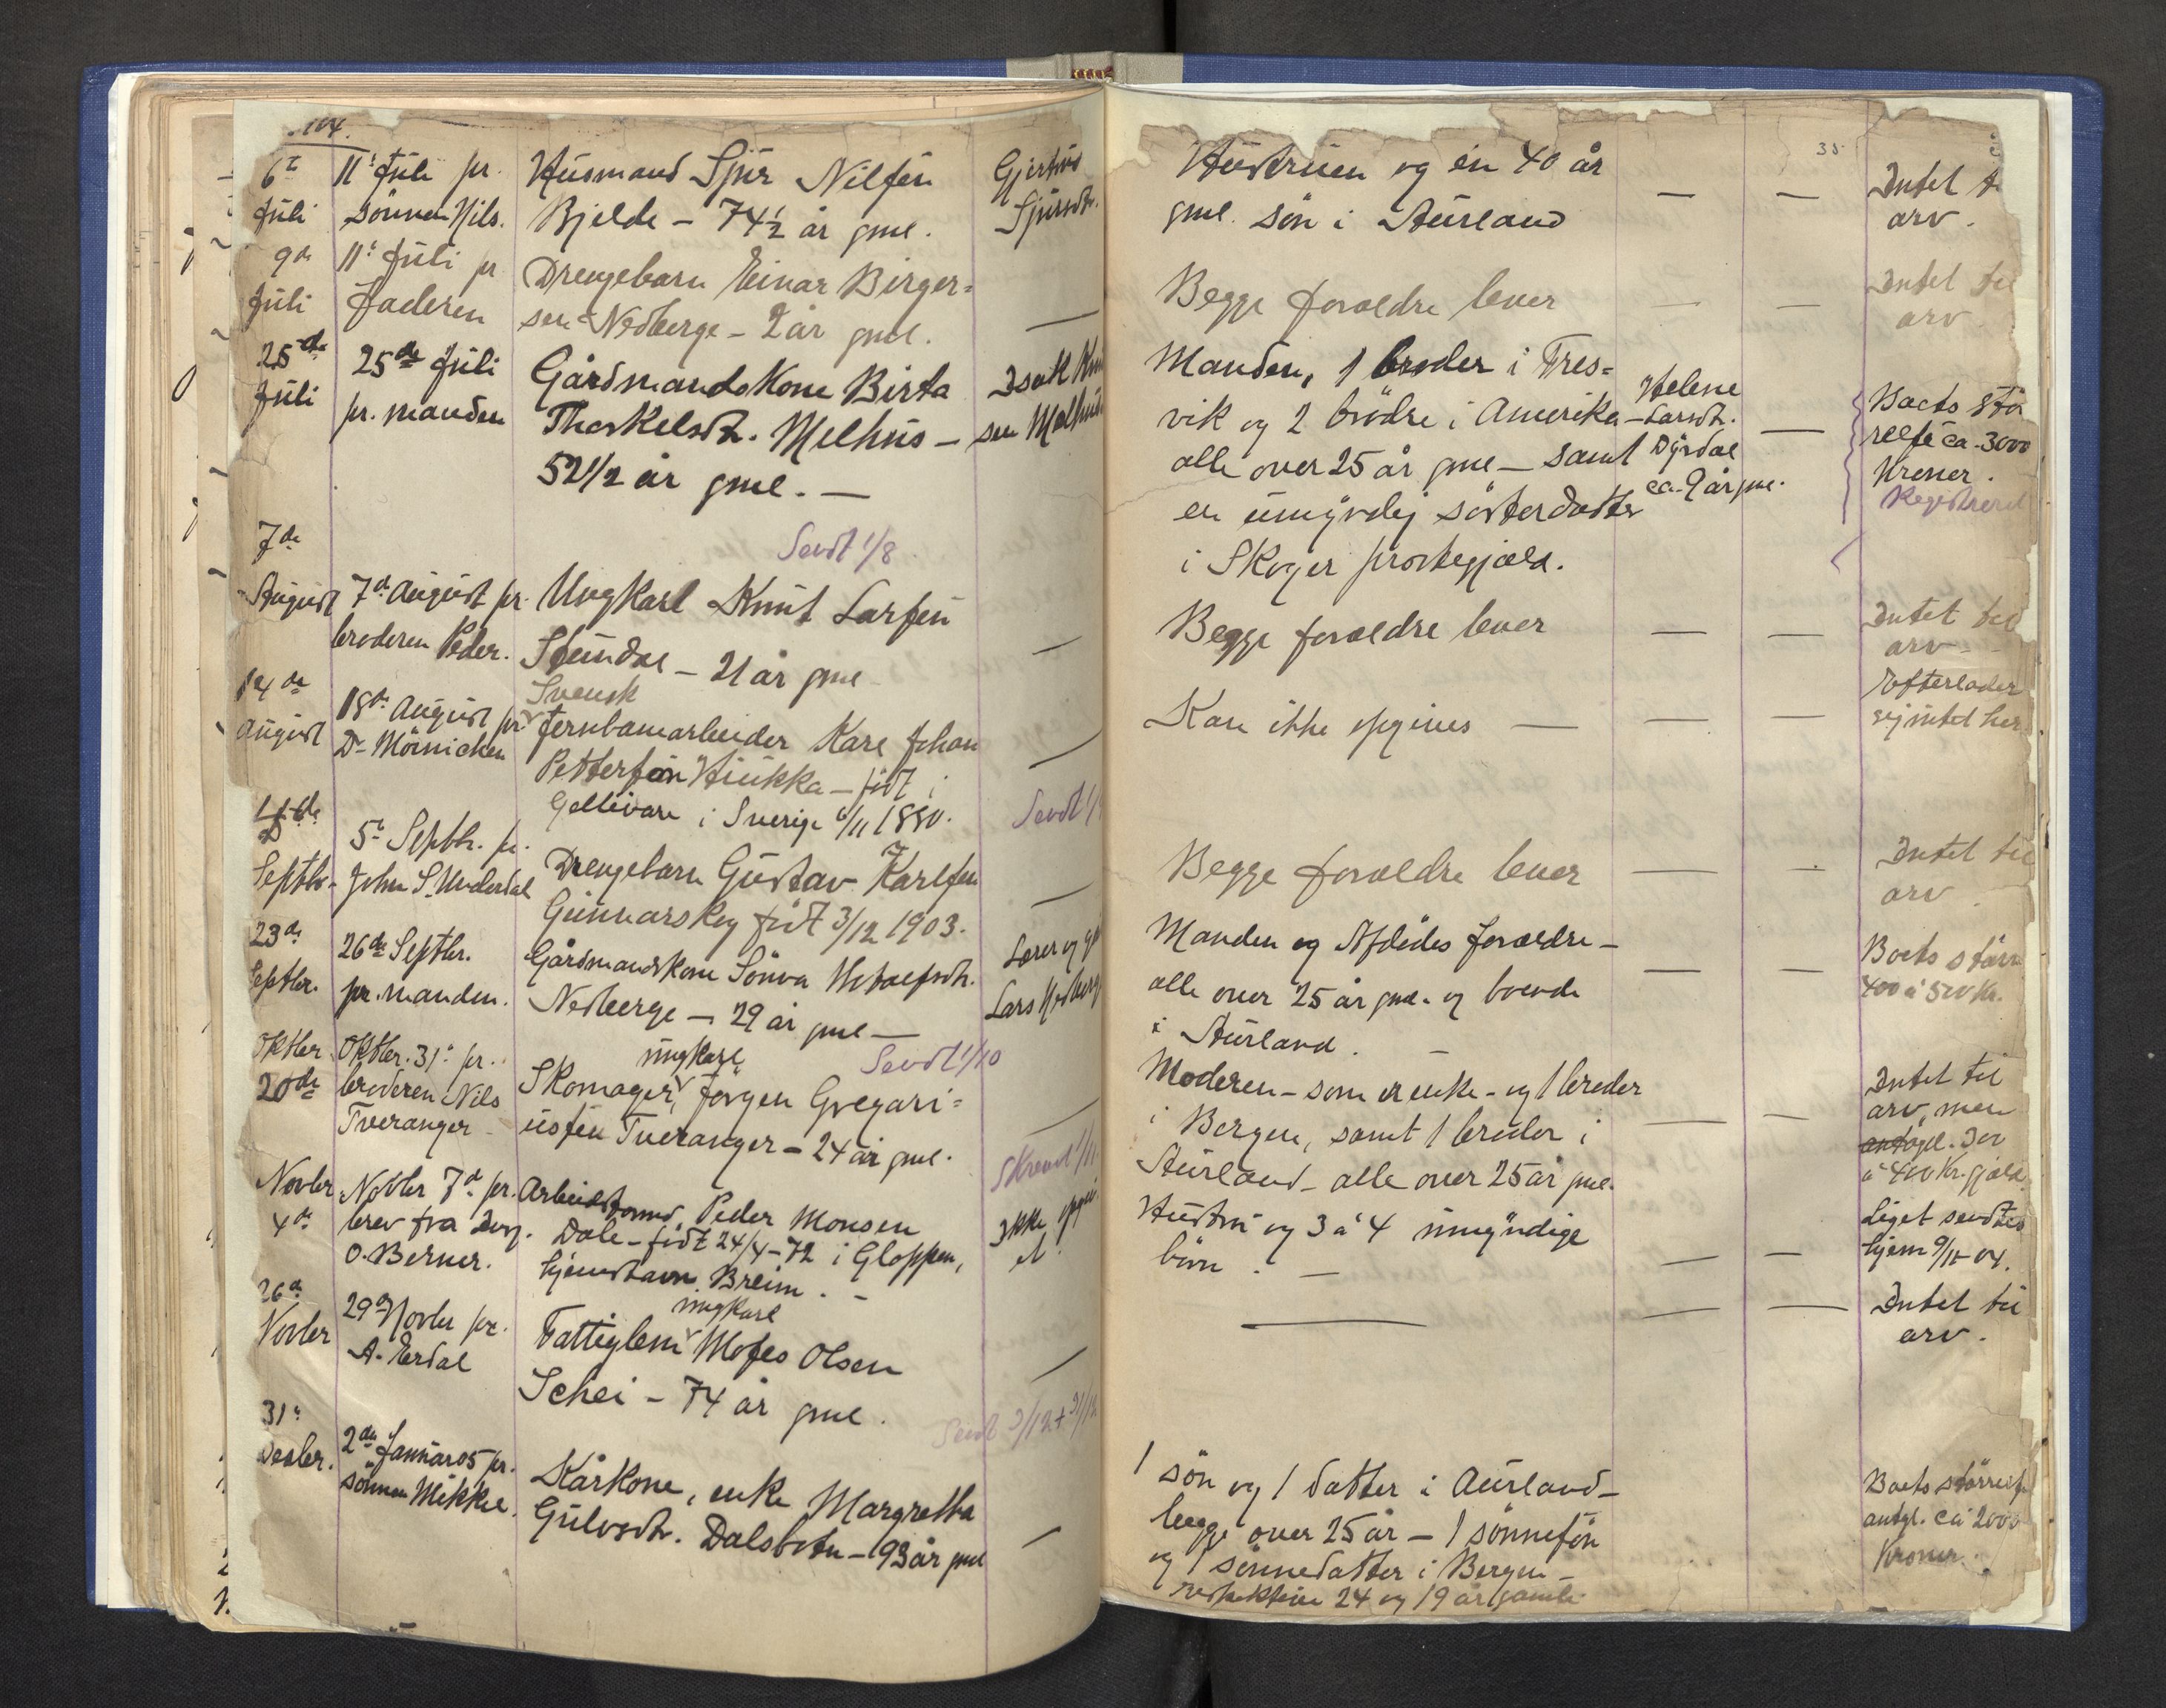 104.
6te
Juli
11' Juli pr.
sönnen Nils.
Husmand Sjur Nilsen
Bjelde - 74½ år gml.
Gjertrus
Sjursdtr.
Hustruen og én 40 år
gml. sön i Aurland
—
—
Intet t
arv.
35
9de
Juli
11' Juli pr
Faderen
Drengebarn Einar Birger=
sen Nedberge - 2 år gml.
—
Begge forældre lever
—
—
Intet til
arv.
25de
Juli
25de Juli
pr. manden
Gårdmandskone Birta
Thorkelsdtr. Melhus -
52 1/2 år gml. —
Isak Knu
sen Melhus
Manden, 1 broder i Fres=
vik og 2 brödre i Amerika -
alle over 25 år gml - samt
en umyndig sösterdatter
i Skoger prestegjæld.
Helene
Larsdtr.
Dyrdal
ca. 9 år gml.
—
Boets stör
relse ca. 3000
Kroner.
Registrerd
Sendt 1/8
7de
August
7d. August pr.
broderen Peder.
Ungkarl Knut Larsen
Stundal - 21 år gml
—
Begge forældre lever
—
—
Intet til
arv -
14de
August
18de August pr
Dr Mörnichen
Svensk
Jernbanearbeider Karl Johan
Pettersen Hiukka - född i
Gellivare i Sverige 6/11 1880.
—
Sendt 1/
Kan ikke opgives —
—
—
Efterlader
sig intet her
Septbr.
5te Septbr. pr.
John S. Underdal
Drengebarn Gustav Karlsen
Gunnarskog född 3/12 1903.
—
Begge forældre lever
—
—
Intet til
arv.
23de
Septbr.
26de Septbr.
pr. manden.
Gårdmandskone Sönva
Nedberge - 29 år gml —
Lærer og
Lars Nedberg
Manden og Afdödes forældre -
alle over 25 år gml. og boende
i Aurland. —
—
—
Boets störr
400 à 500 Kr.
Sendt 1/10
Oktbr
20de
Oktbr. 31' pr.
broderen Nils
Tveranger -
ungkarl
Skomager, Jörgen Gregari=
ussen Tveranger - 24 år gml.
—
Moderen - som er enke - og 1 broder
i Bergen, samt 1 broder i
Aurland - alle over 25 år gml.
—
—
Intet til
arv, men
400 Kr. gjæld.
Novbr
4de
Novbr 7d. pr.
brev fra
O. Berner.
Arbeidsformd Peder Monsen
Dale - född 24/4 - 72 i Gloppen,
hjemstavn Breim. -
Ikke opgiv
et
Hustru og 3 à 4 umyndige
börn. —
—
—
Liget sendtes
hjem 9/11 - 04.
26de
Novbr
29de Novbr pr.
A. Erdal
ungkarl
Fattiglem Moses Olsen
Schei - 74 år gml.
—
—
—
—
Intet til
arv.
31'
Decbr.
2den Januar 05 pr.
sönnen Mikkel.
Kårkone, enke Margretha
Gulvsdtr. Dalsbotn - 93 år gml
—
1 sön og 1 datter i Aurland -
begge over 25 år - 1 sönnesön
og 1 sönnedatter i Bergen -
respektive 24 og 19 år gamle
Boets störrelse
antgl. ca 2000
Kroner.